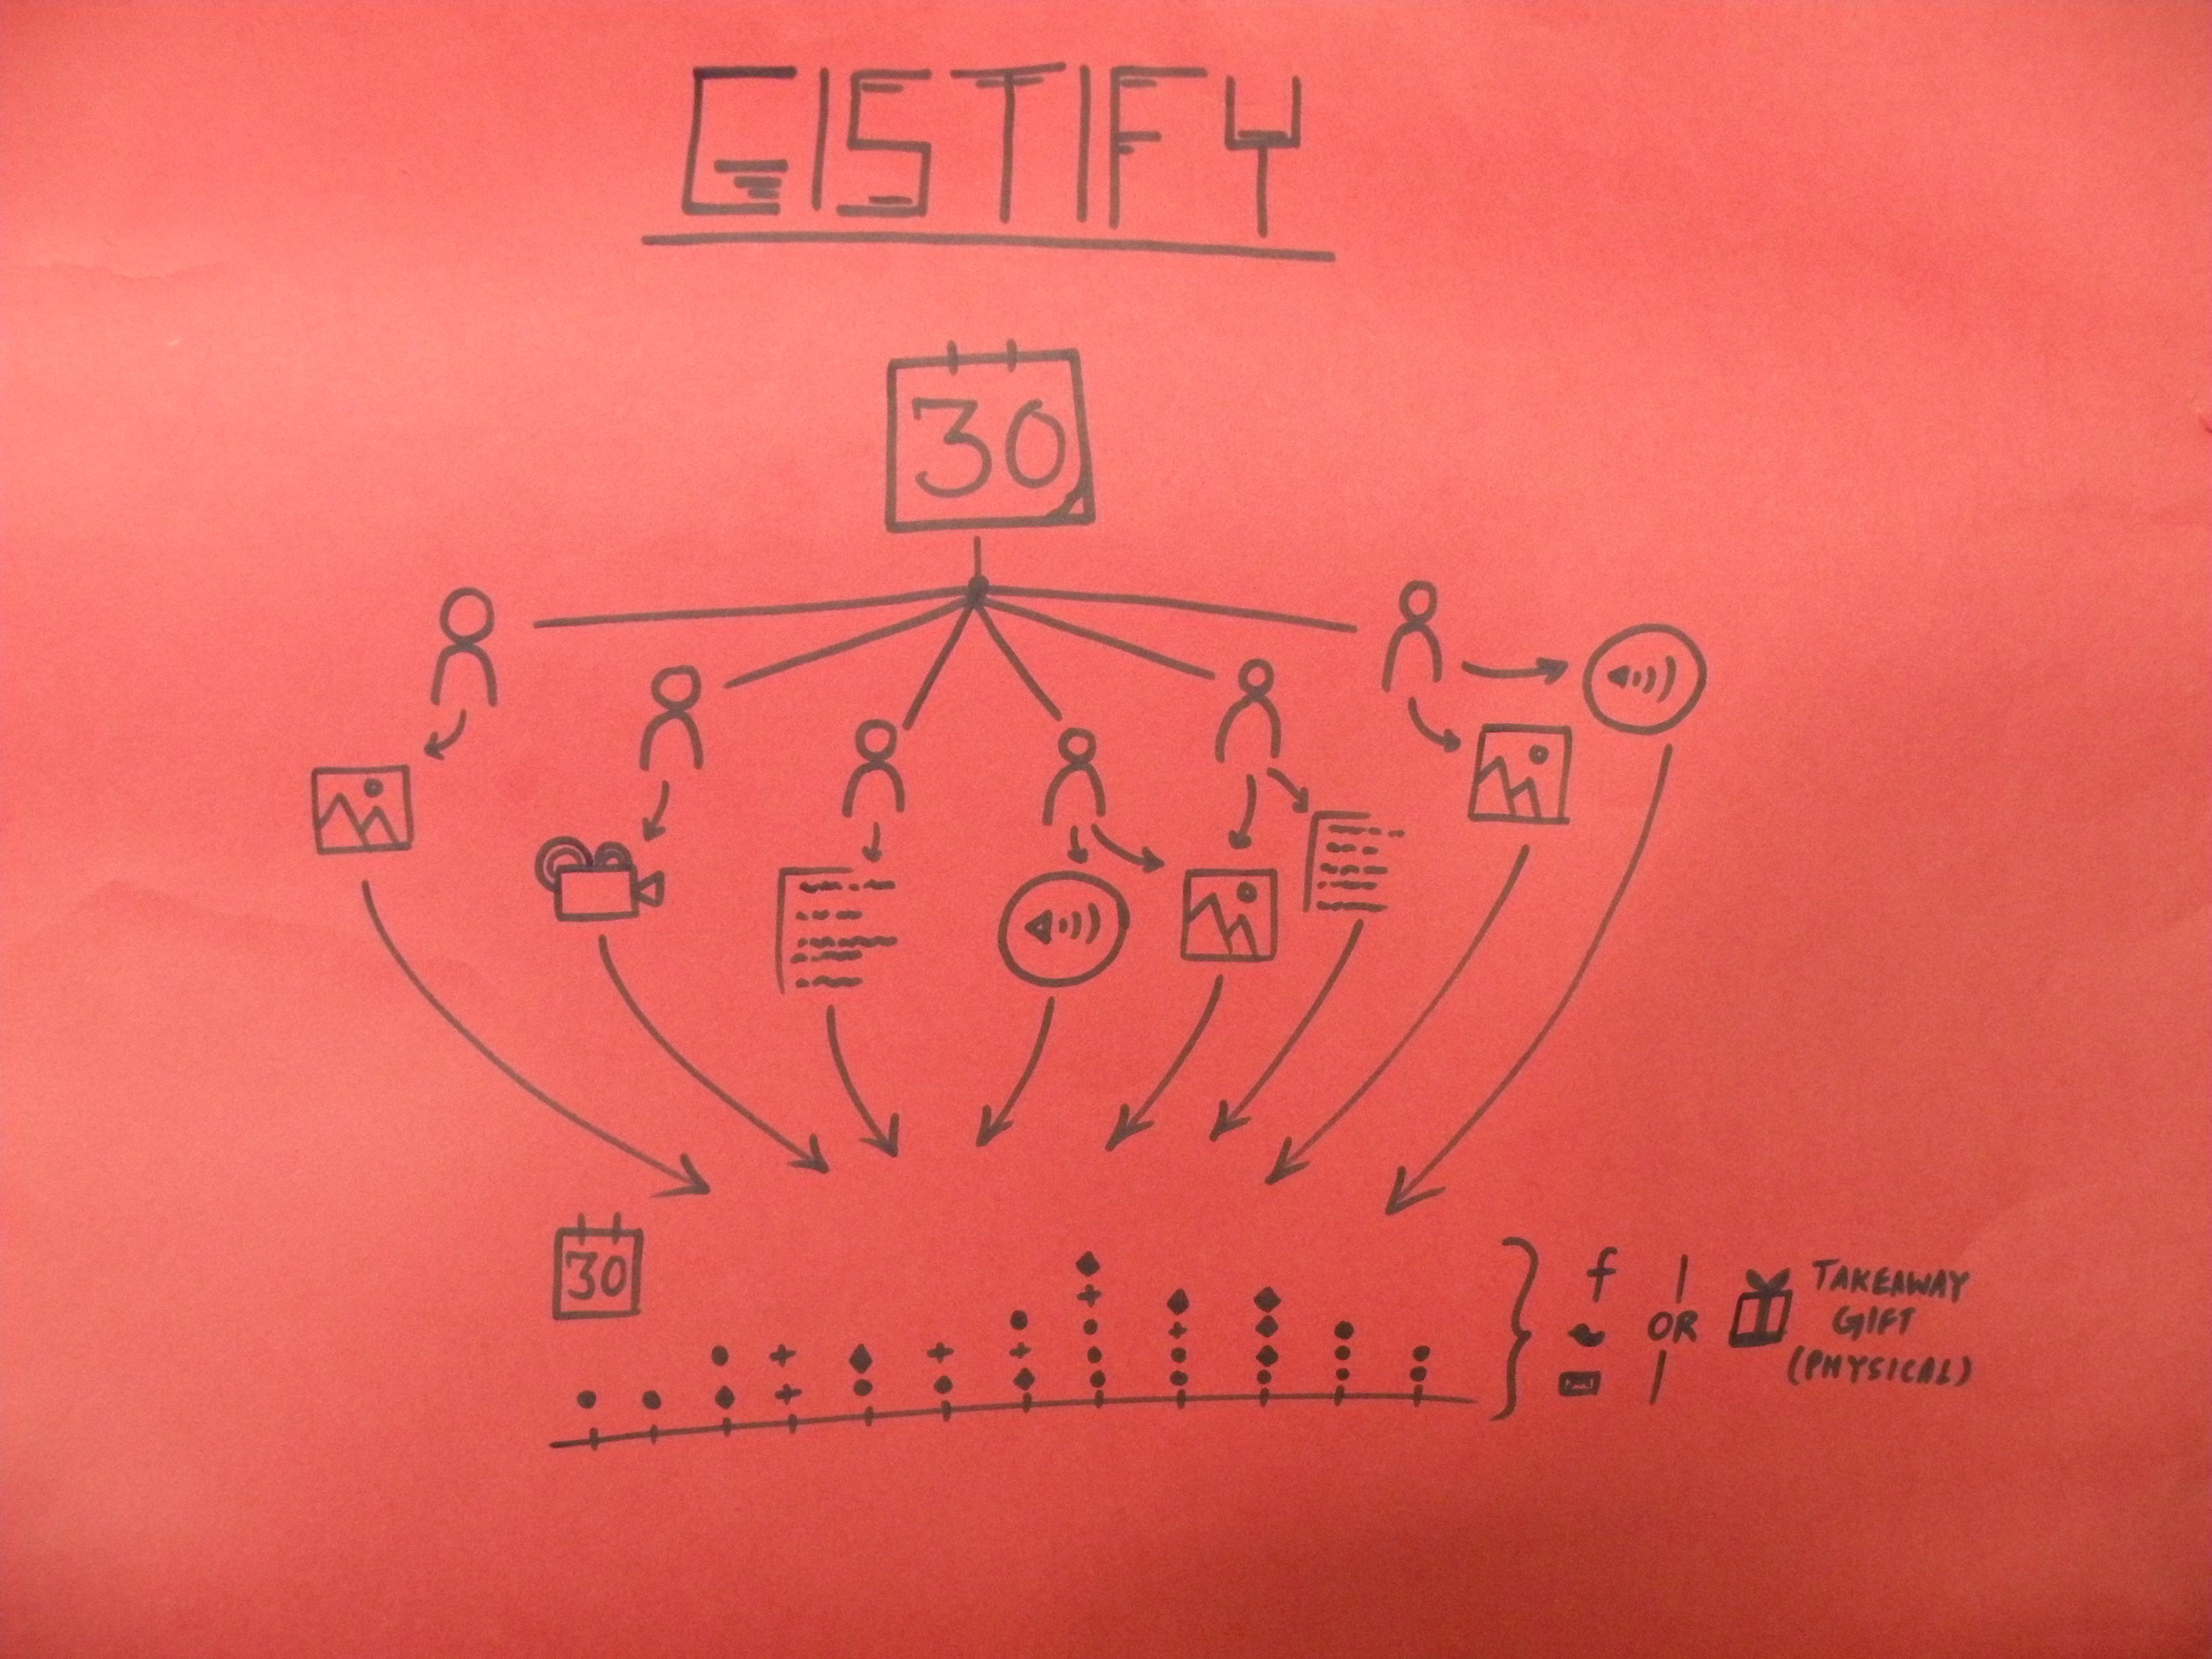 GISTIFY
30
30
f
OR
TAKEAWAY
GIFT
(PHYSICAL)